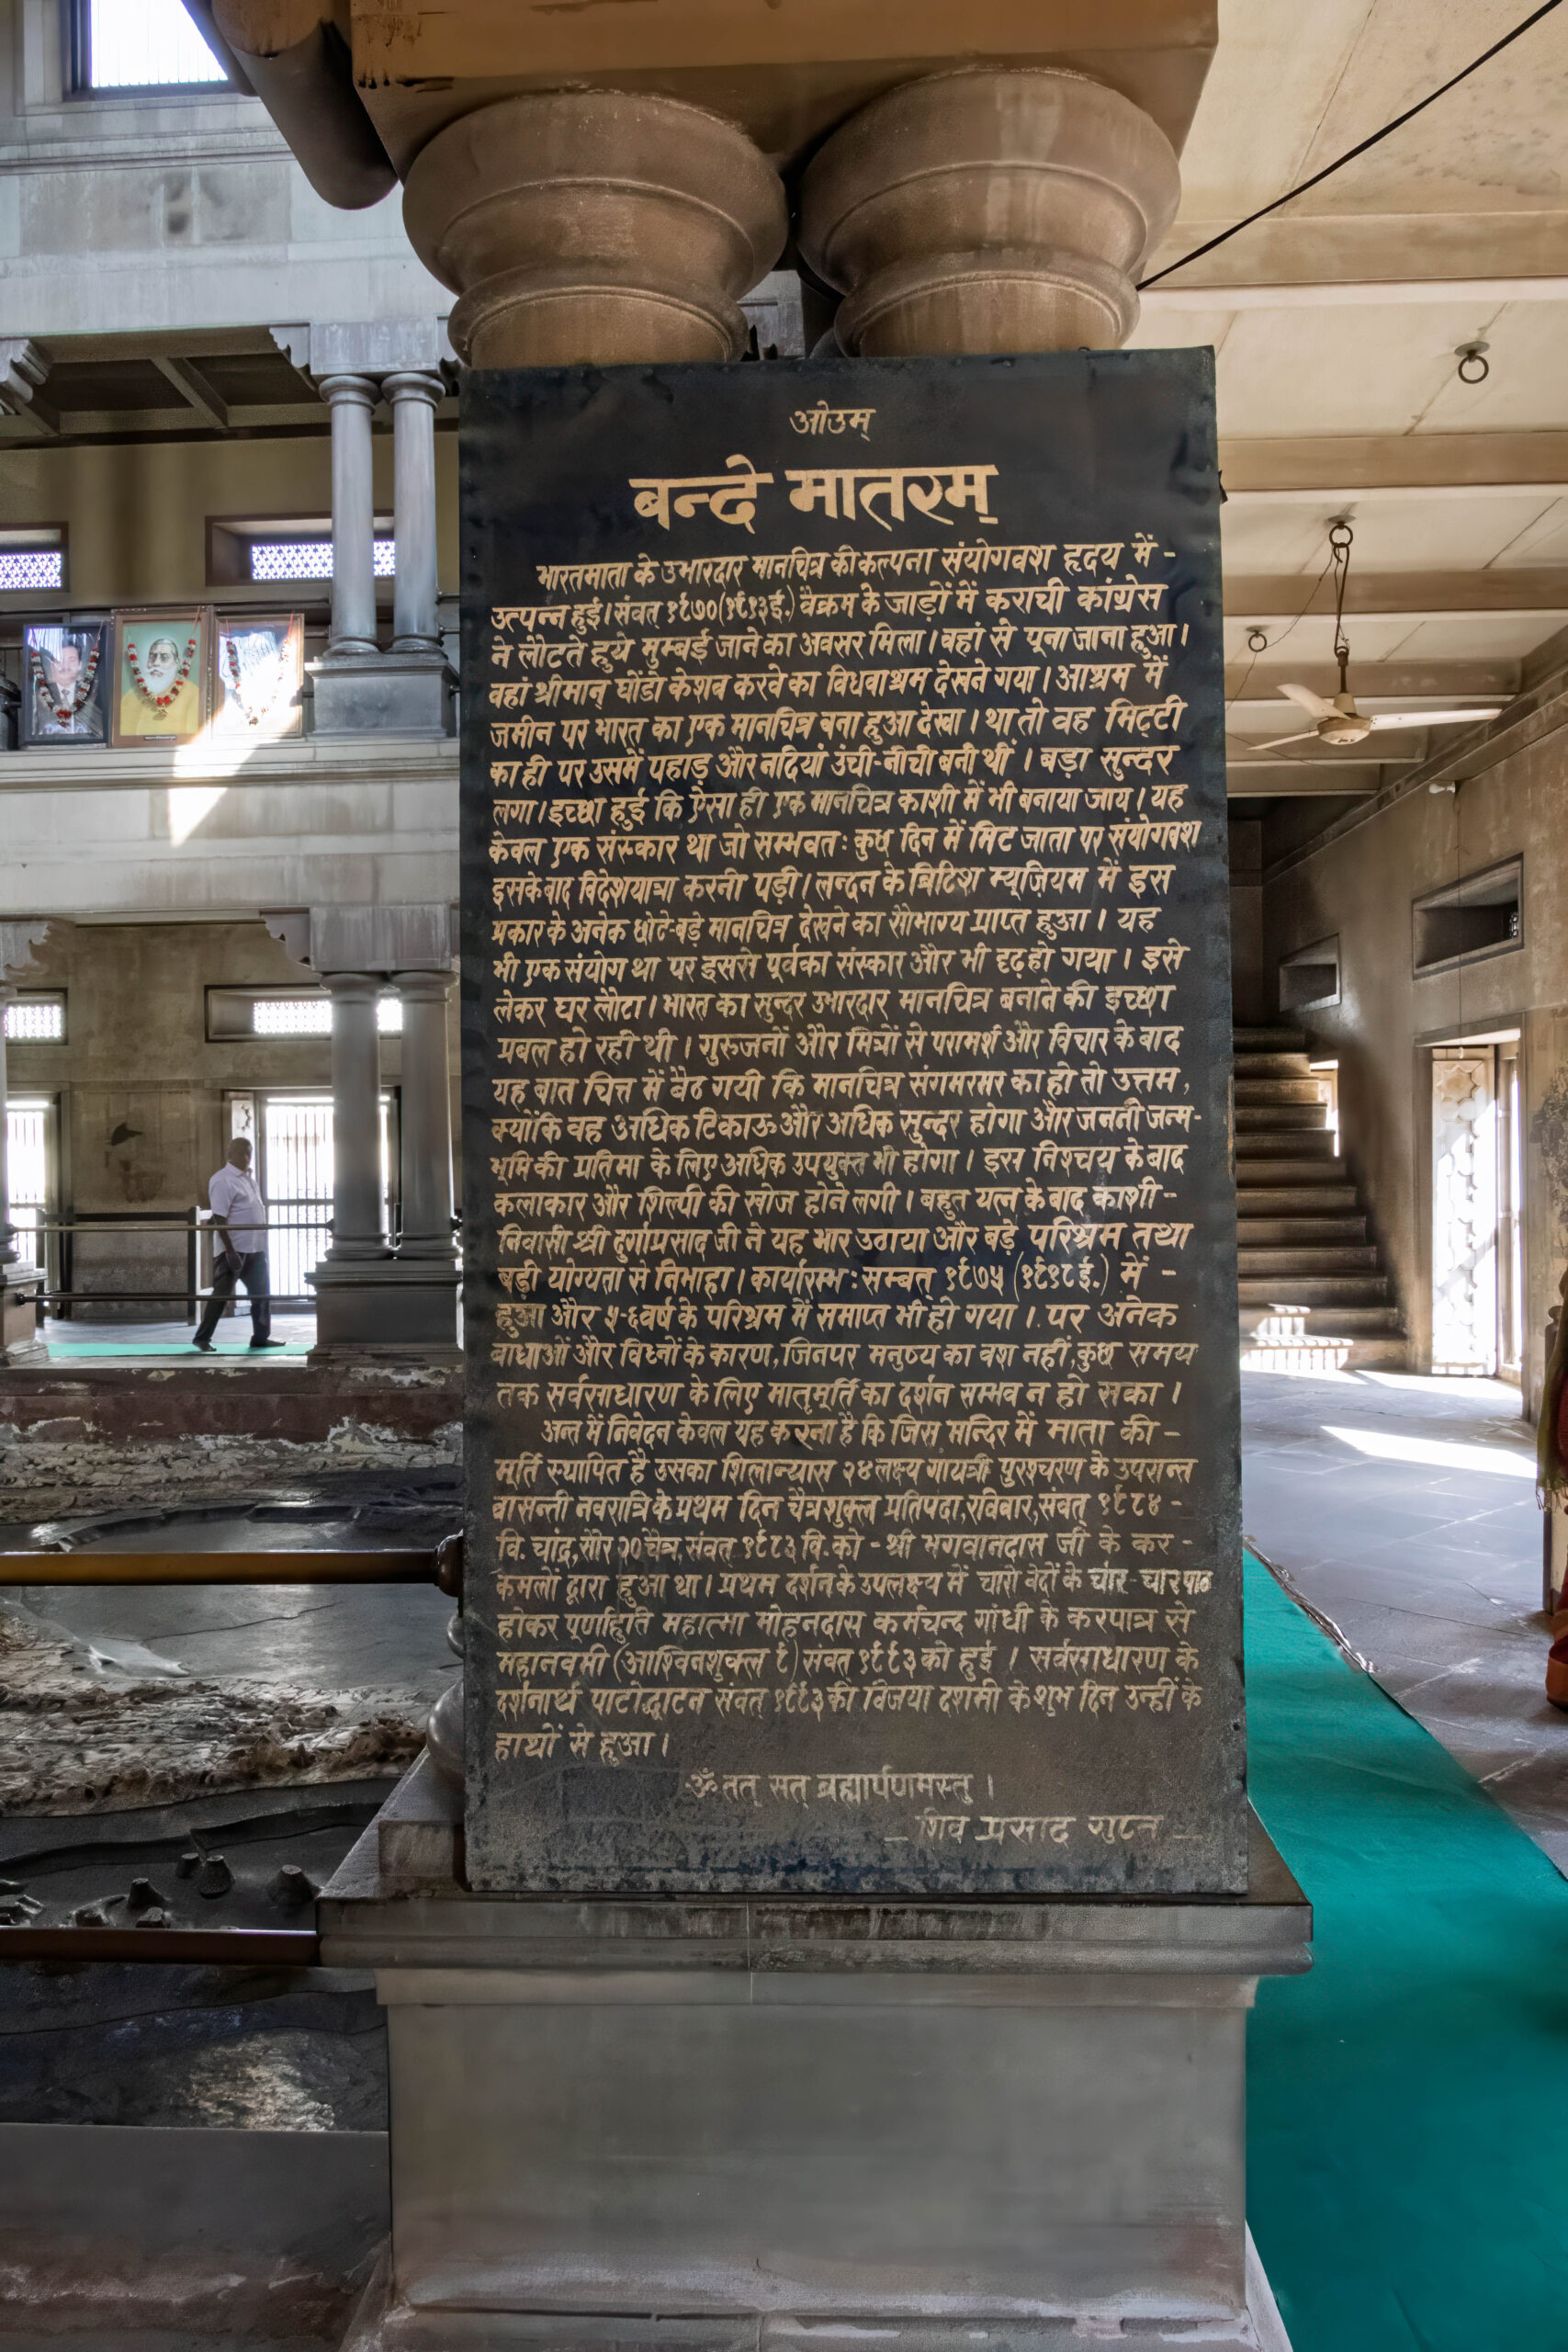 ओउम्
बन्दे मातरम्
भारतमाता के उभारदार मानचित्र की कल्पना संयोगवश हृदय में -
उत्पन्न हुई। संवत् १९७० (१९१३ई.) वैक्रम के जाड़ों में कराची कांग्रेस
ने लौटते हुये मुम्बई जाने का अवसर मिला। वहां से पूना जाना हुआ।
वहां श्रीमान् घोंडो केशव करवे का विधवाश्रम देखने गया। आश्रम में
जमीन पर भारत का एक मानचित्र बना हुआ देखा। था तो वह मिट्टी
का ही पर उसमें पहाड़ और नदियां उंची-नीची बनी थीं । बड़ा सुन्दर
लगा। इच्छा हुई कि ऐसा ही एक मानचित्र काशी में भी बनाया जाय। यह
केवल एक संस्कार था जो सम्भवत: कुछ दिन में मिट जाता पर संयोगवश
इसके बाद विदेशयात्रा करनी पड़ी। लन्दन के ब्रिटिश म्यूज़ियम में इस
प्रकार के अनेक छोटे-बड़े मानचित्र देखने का सौभाग्य प्राप्त हुआ। यह
भी एक संयोग था पर इससे पूर्व का संस्कार और भी दृढ़ हो गया। इसे
लेकर घर लौटा। भारत का सुन्दर उभारदार मानचित्र बनाने की इच्छा
प्रबल हो रही थी। गुरुजनों और मित्रों से परामर्श और विचार के बाद
यह बात चित्त में बैठ गयी कि मानचित्र संगमरमर का हो तो उत्तम,
क्योंकि वह अधिक टिकाऊ और अधिक सुन्दर होगा और जननी जन्म-
भूमि की प्रतिमा के लिए अधिक उपयुक्त भी होगा। इस निश्चय के बाद
कलाकार और शिल्पी की खोज होने लगी। बहुत यत्न के बाद काशी -
निवासी श्री दुर्गाप्रसाद जी ने यह भार उठाया और बड़े परिश्रम तथा
बड़ी योग्यता से निभाहा। कार्यारम्भ: सम्बत् १९७५ (१९१८ई.) में -
हुआ और ५-६ वर्ष के परिश्रम में समाप्त भी हो गया।. पर अनेक
बाधाओं और विघ्नों के कारण, जिनपर मनुष्य का वश नहीं, कुछ समय
तक सर्वसाधारण के लिए मातृमूर्ति का दर्शन सम्भव न हो सका।
अन्त में निवेदन केवल यह करना है कि जिस मन्दिर में माता की -
मूर्ति स्थापित है उसका शिलान्यास २४ लक्ष्य गायत्री पुरश्चरण के उपरान्त
वासन्ती नवरात्रि के प्रथम दिन चैत्रशुक्ल प्रतिपदा, रविवार, संवत् १९८४ -
वि. चांद्र, सौर २० चैत्र, संवत १९८३ वि. को - श्री भगवानदास जी के कर -
कमलों द्वारा हुआ था। प्रथम दर्शन के उपलक्ष्य में चारो वेदों के चार-चार पाठ
होकर पूर्णाहुति महात्मा मोहनदास कर्मचन्द गांधी के करपात्र से
महानवमी (आश्विन शुक्ल ९) संवत १९९३ को हुई । सर्वसाधारण के
दर्शनार्थ पाटोद्घाटन संवत् १९९३ की विजया दशमी के शुभ दिन उन्हीं के
हाथों से हुआ।
ॐ तत् सत् ब्रह्मार्पणमस्तु।
_ शिव प्रसाद गुप्त _